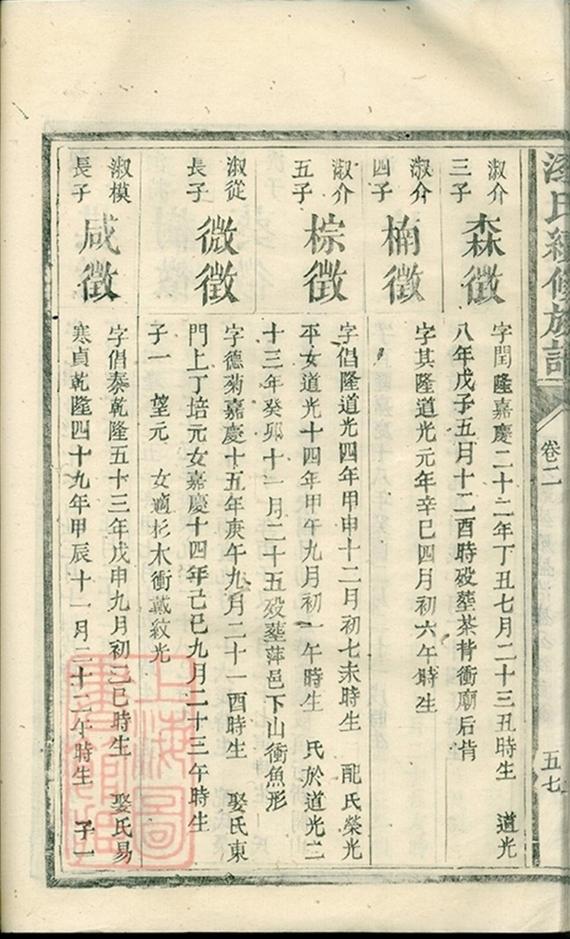 氏續修族譜
卷二
五七
淑介
三子
森徵
字閏隆嘉慶二十二年丁丑七月二十三丑時生 道光
八年戊子五月十二酉時殁塟茶背衝廟后背
淑介
四子
楠徵
字其隆道光元年辛巳四月初六午時生
淑介
五子
棕徵
字倡隆道光四年甲申十二月初七未時生 配氏榮光
平女道光十四年甲午九月初一午時生 氏於道光二
十三年癸卯十一月二十五殁塟萍邑下山衝魚形
淑從
長子
微徵
字德菊嘉慶十五年庚午九月二十一酉時生 娶氏東
門上丁培元女嘉慶十四年己巳九月二十三午時生
子一 望元 女適杉木衝戴紋光
淑模
長子
咸徵
字倡泰乾隆五十三年戊申九月初二巳時生 娶氏易
寒貞乾隆四十九年甲辰十一月二十二午時生 子一
上海圖